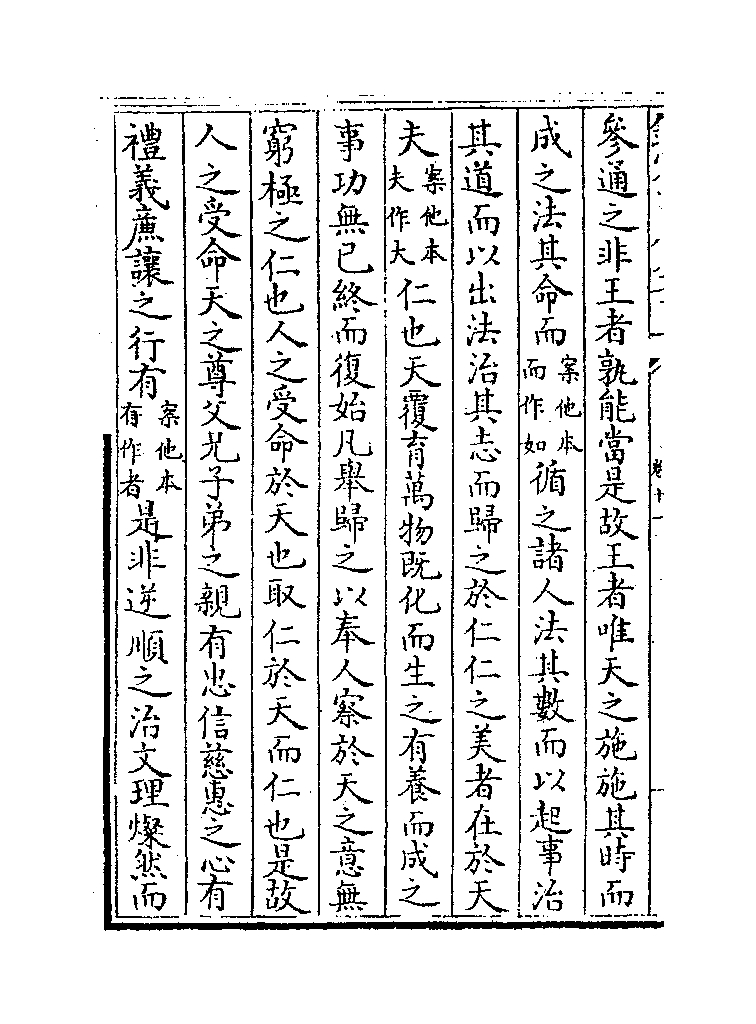 參通之非王者孰能當是故王者唯天之施施其時而
成之法其命而案他本而作如循之諸人法其數而以起事治
其道而以出法治其志而歸之於仁仁之美者在於天
夫案他本夫作大仁也天覆育萬物既化而生之有養而成之
事功無已終而復始凡舉歸之以奉人察於天之意無
窮極之仁也人之受命於天也取仁於天而仁也是故
人之受命天之尊父兄子弟之親有忠信慈惠之心有
禮義廉讓之行有案他本有作者是非逆順之治文理燦然而